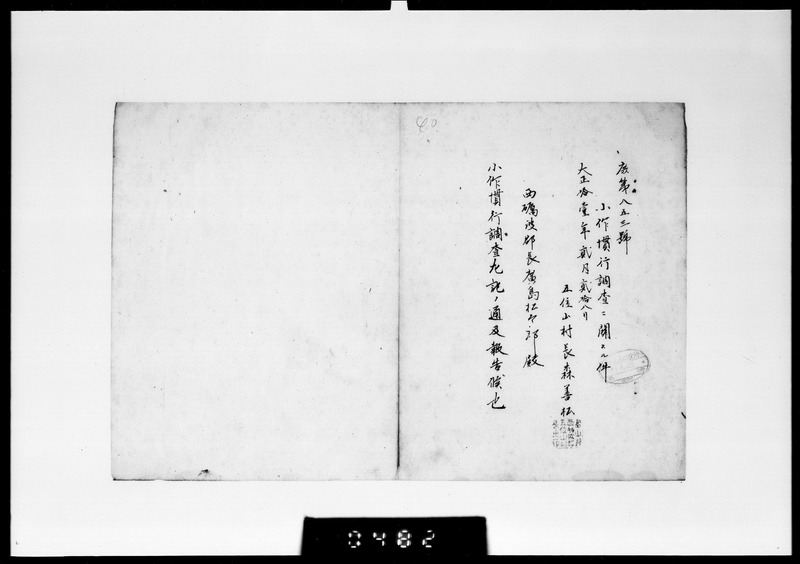 庶第八五三號
小作慣行調査ニ関スル件
大正拾壹年貳月貳拾八日
五位山村長森善松
西礪波郡長廣島松太郎殿
小作慣行調査左記ノ通及報告候也
40
0482